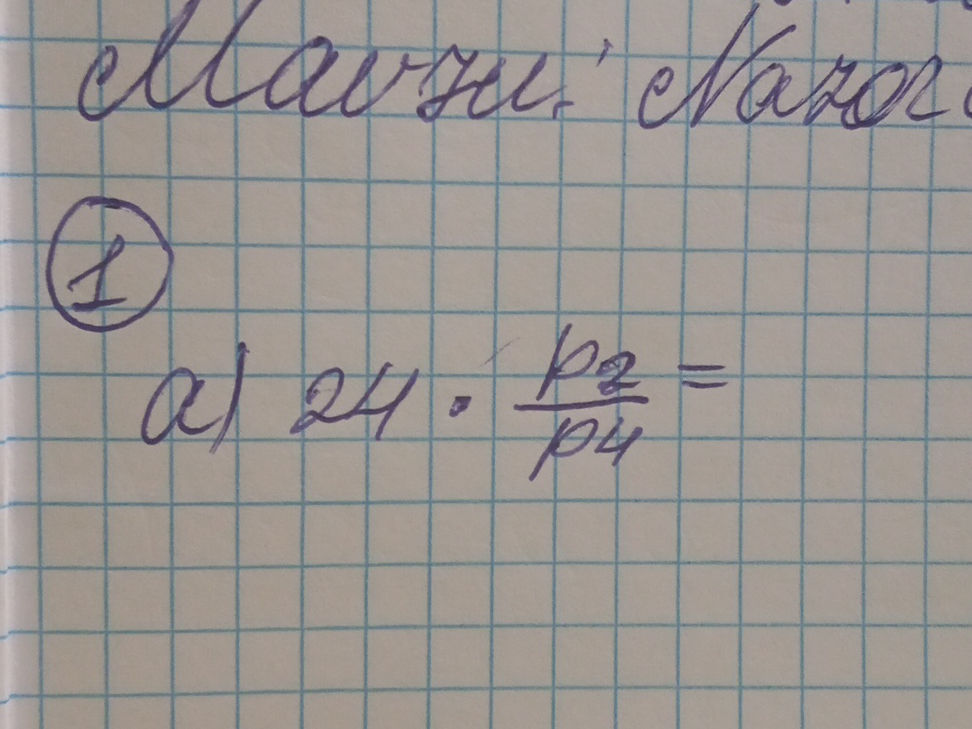 Mavzu: Nazor
1
a) 24 · p2/p4 =